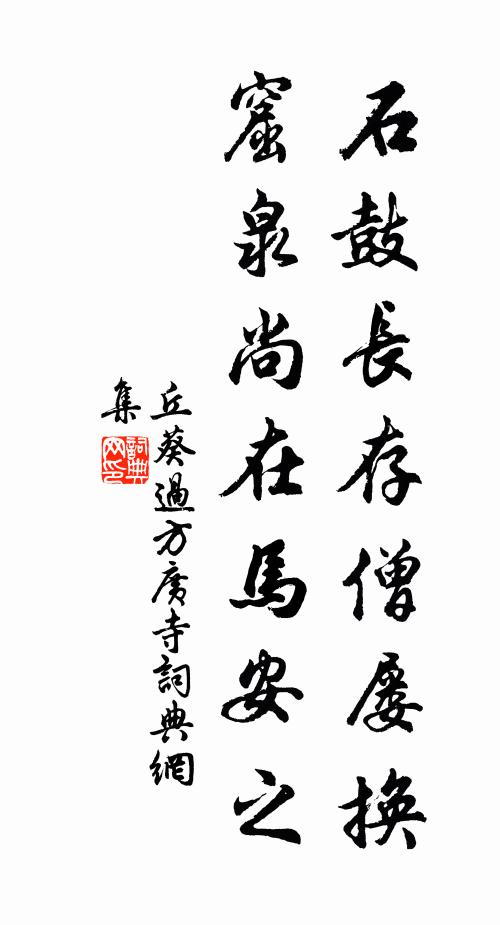 石鼓長存僧屡換
窟泉尚在馬安之
丘葵過方廣寺詞典網
集
詞典網印